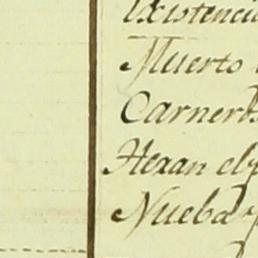 Existencia
Muerto
Carneros
Hexan el
Nueba